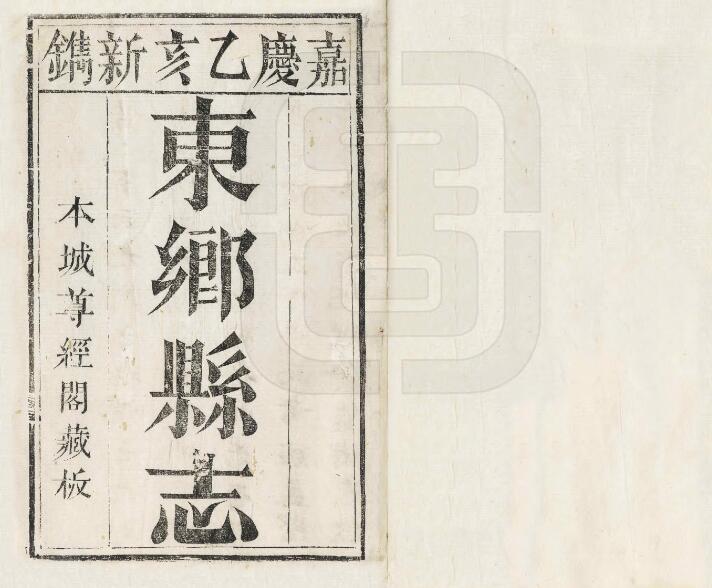 嘉慶乙亥新鐫
東鄉縣志
本城尊經閣藏板